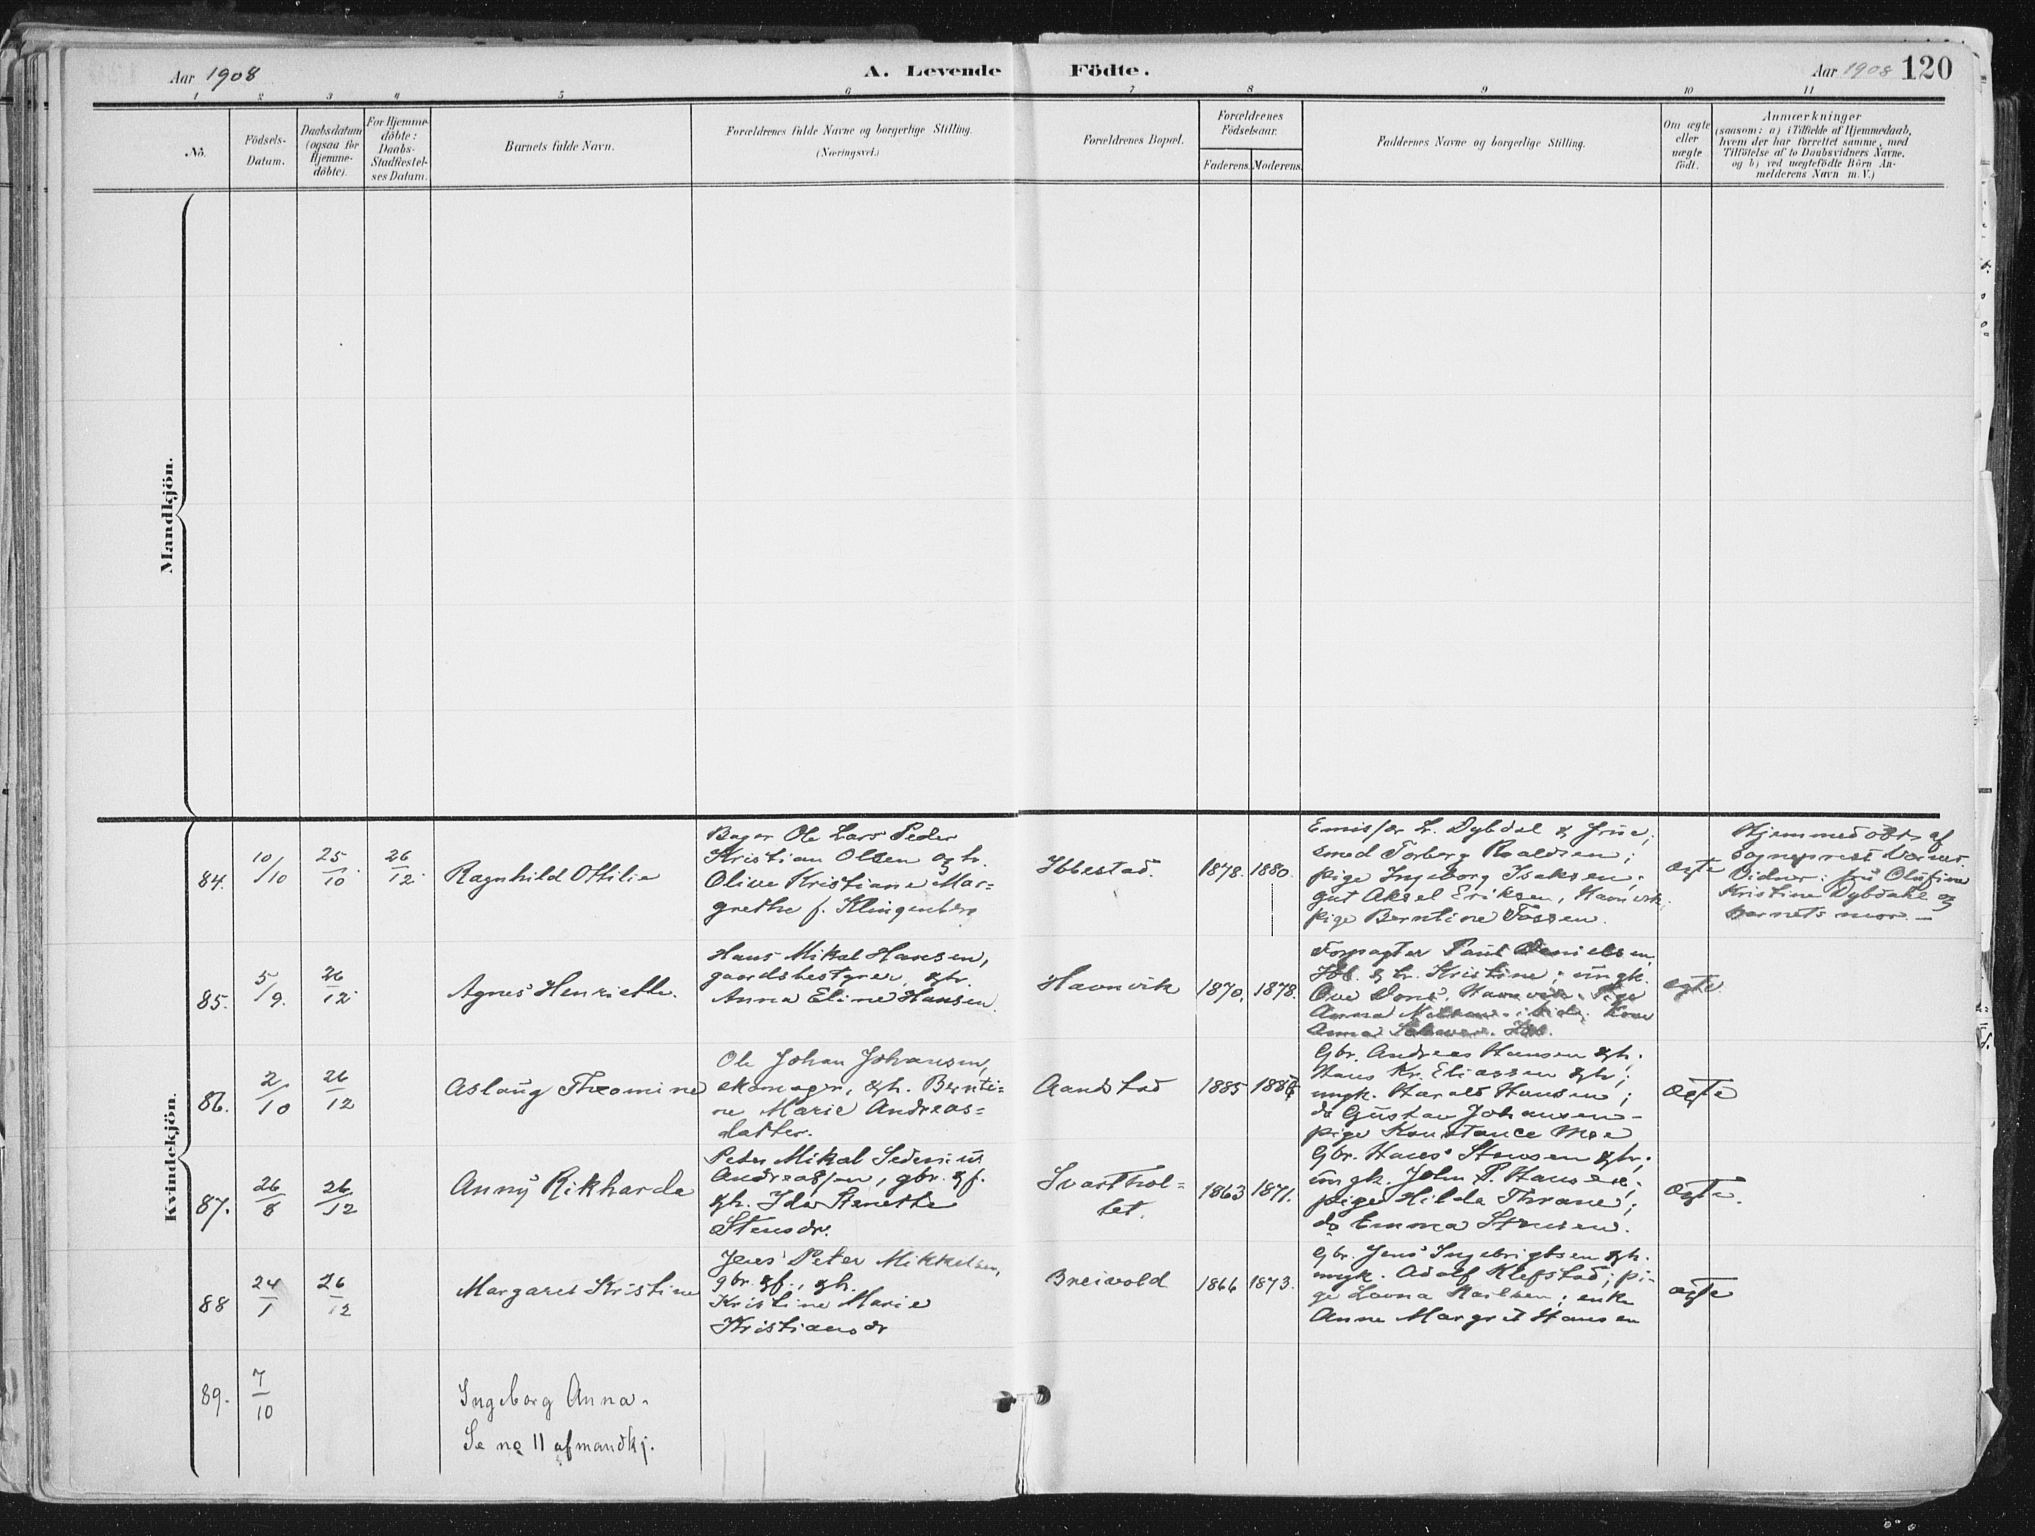 Aar 1908
A. Levende Födte.
Aar 1908 120
1 2 3 4 5 6 7 8 9 10 11
No.
Födsels-
Datum.
Daabsdatum
(ogsaa for
Hjemme-
döbte).
For Hjemme-
döbte:
Daabs-
Stadfæstel-
ses Datum.
Barnets fulde Navn.
Forældrenes fulde Navne og borgerlige Stilling.
(Næringsvei.)
Forældrenes Bopæl.
Forældrenes
Födselsaar.
Faderens. Moderens.
Faddernes Navne og borgerlige Stilling.
Om ægte
eller
uægte
födt.
Anmærkninger
(saasom: a) i Tilfælde af Hjemmedaab,
hvem der har forrettet samme, med
Tilföielse af to Daabsvidners Navne,
og b) ved uægtefödte Börn An-
melderens Navn m. V.)
Mandkjön.
Kvindekjön.
84. 10/10 25/10 26/12.
Ragnhild Othilie
Bager Ole Lars Peder
Kristian Olsen og h.
Olive Kristiane Mar-
grethe f. Klingenberg
Ibbestad.
1878. 1880.
Emissær L. Dybdal & frue;
smed Torberg Roaldsen;
pige Ingeborg Isaksen;
gut Aksel Eriksen, Havnvik,
pige Berntine Tossen.
ægte
Hjemmedöbt af
sogneprest
Vidner: fru Olufine
Kristine Dybdahl og
barnets mor. —
85. 5/9. 26/12.
Agnes Henriette.
Hans Mikal Hansen,
gaardsbestyrer, & h.
Anna Eline Hansen
Havnvik
1870. 1878.
Forpagter Paul Danielsen,
Ibb. & h. Kristine; ungk.
Ove Dons, Havnvik. Pige
Anna
Anna Ibb.
ægte.
86. 2/10 26/12
Aslaug Theomine
Ole Johan Johansen,
skomager, & h. Bernti-
ne Marie Andreas-
datter.
Aandstad
1885
Gbr. Andreas Hansen & h.
Hans Kr. Eliassen & h;
ungk. Harald Hansen;
do Gustav Johansen -
pige Konstance Moe
ægte
87. 26/8 26/12
Anny Rikharda
Peter Mikal
Andreassen, gbr. & f.
& h. Ida Stenette
Stensdr.
Svarthol-
tet.
1863 1871.
Gbr. Hans Stensen & h.;
ungk. John P. Hansen;
pige Hilda Thrane;
do Emma Stensen.
ægte.
88 24/1 26/12
Margaret Kristine
Jens Peter Mikkelsen,
gbr. & f., & h.
Kristine Marie
Kristiansdr
Breivold
1866 1873.
Gbr. Jens Ingebrigtsen & h.
ungk. Adolf Klefstad; pi-
ge Lovna Karlsen; enke
Anne Margret Hansen
ægte
89. 7/10
Ingeborg Anna.
Se no 11 af mandkj.